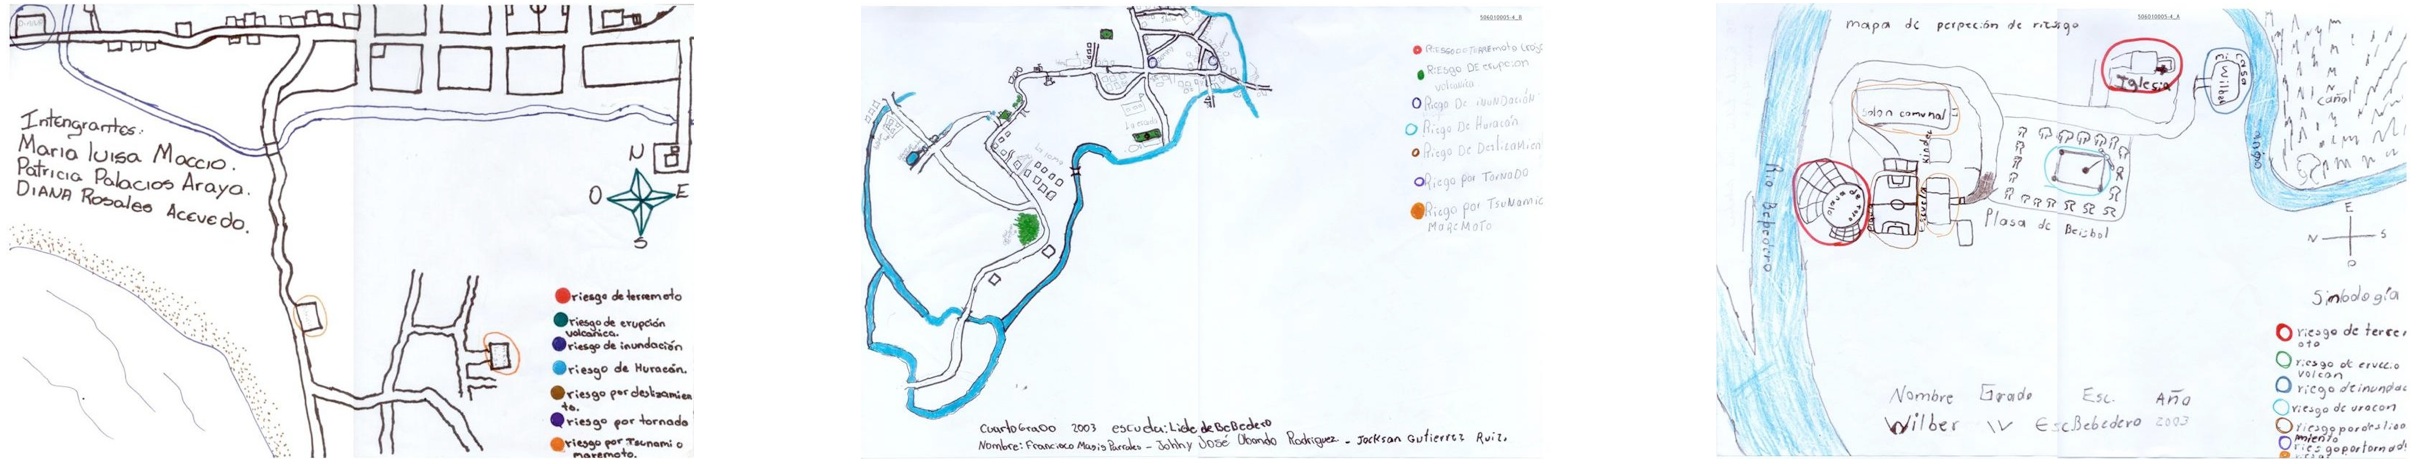 Intengrantes:
Maria luisa Maccio.
Patricia Palacios Araya.
DIANA Rosales Acevedo.
N
O
E
S
riesgo de terremoto
riesgo de erupción
volcanica.
riesgo de inundación
riesgo de Huracán.
riesgo por deslizamien
to.
riesgo por tornado
riesgo por Tsunami o
maremoto.
506010005-4_B
RIESGO DE TERREMOTO
RIESGO DE erupcion
volcanica
Riego De inundación
Riego De Huracán
Riego De Deslizamien
Riego por TorNaDo
Riego por TsuNamic
MareMoto
La escuela
CuartoGraDo 2003 escuela: Lide de BeBeDero
Nombre: Francisco Masis Parrales - Johny José Obando Rodriguez - Jackson Gutierrez Ruiz.
506010005-4_A
mapa de perpeción de riesgo
Iglesia
Casa
Wilber
salon comunal
Kinder
Plasa
Escuela
Plasa de Beisbol
Rio Bepedero
cañal
E
N
S
O
Simbología
riesgo de terrer
oto
riesgo de eruccio
volcan
riesgo de inundac
riesgo de uracan
riesgo por desliso
miento
riesgo por tornad
riesgo
Nombre Grado Esc. Año
Wilber IV Esc.Bebedero 2003